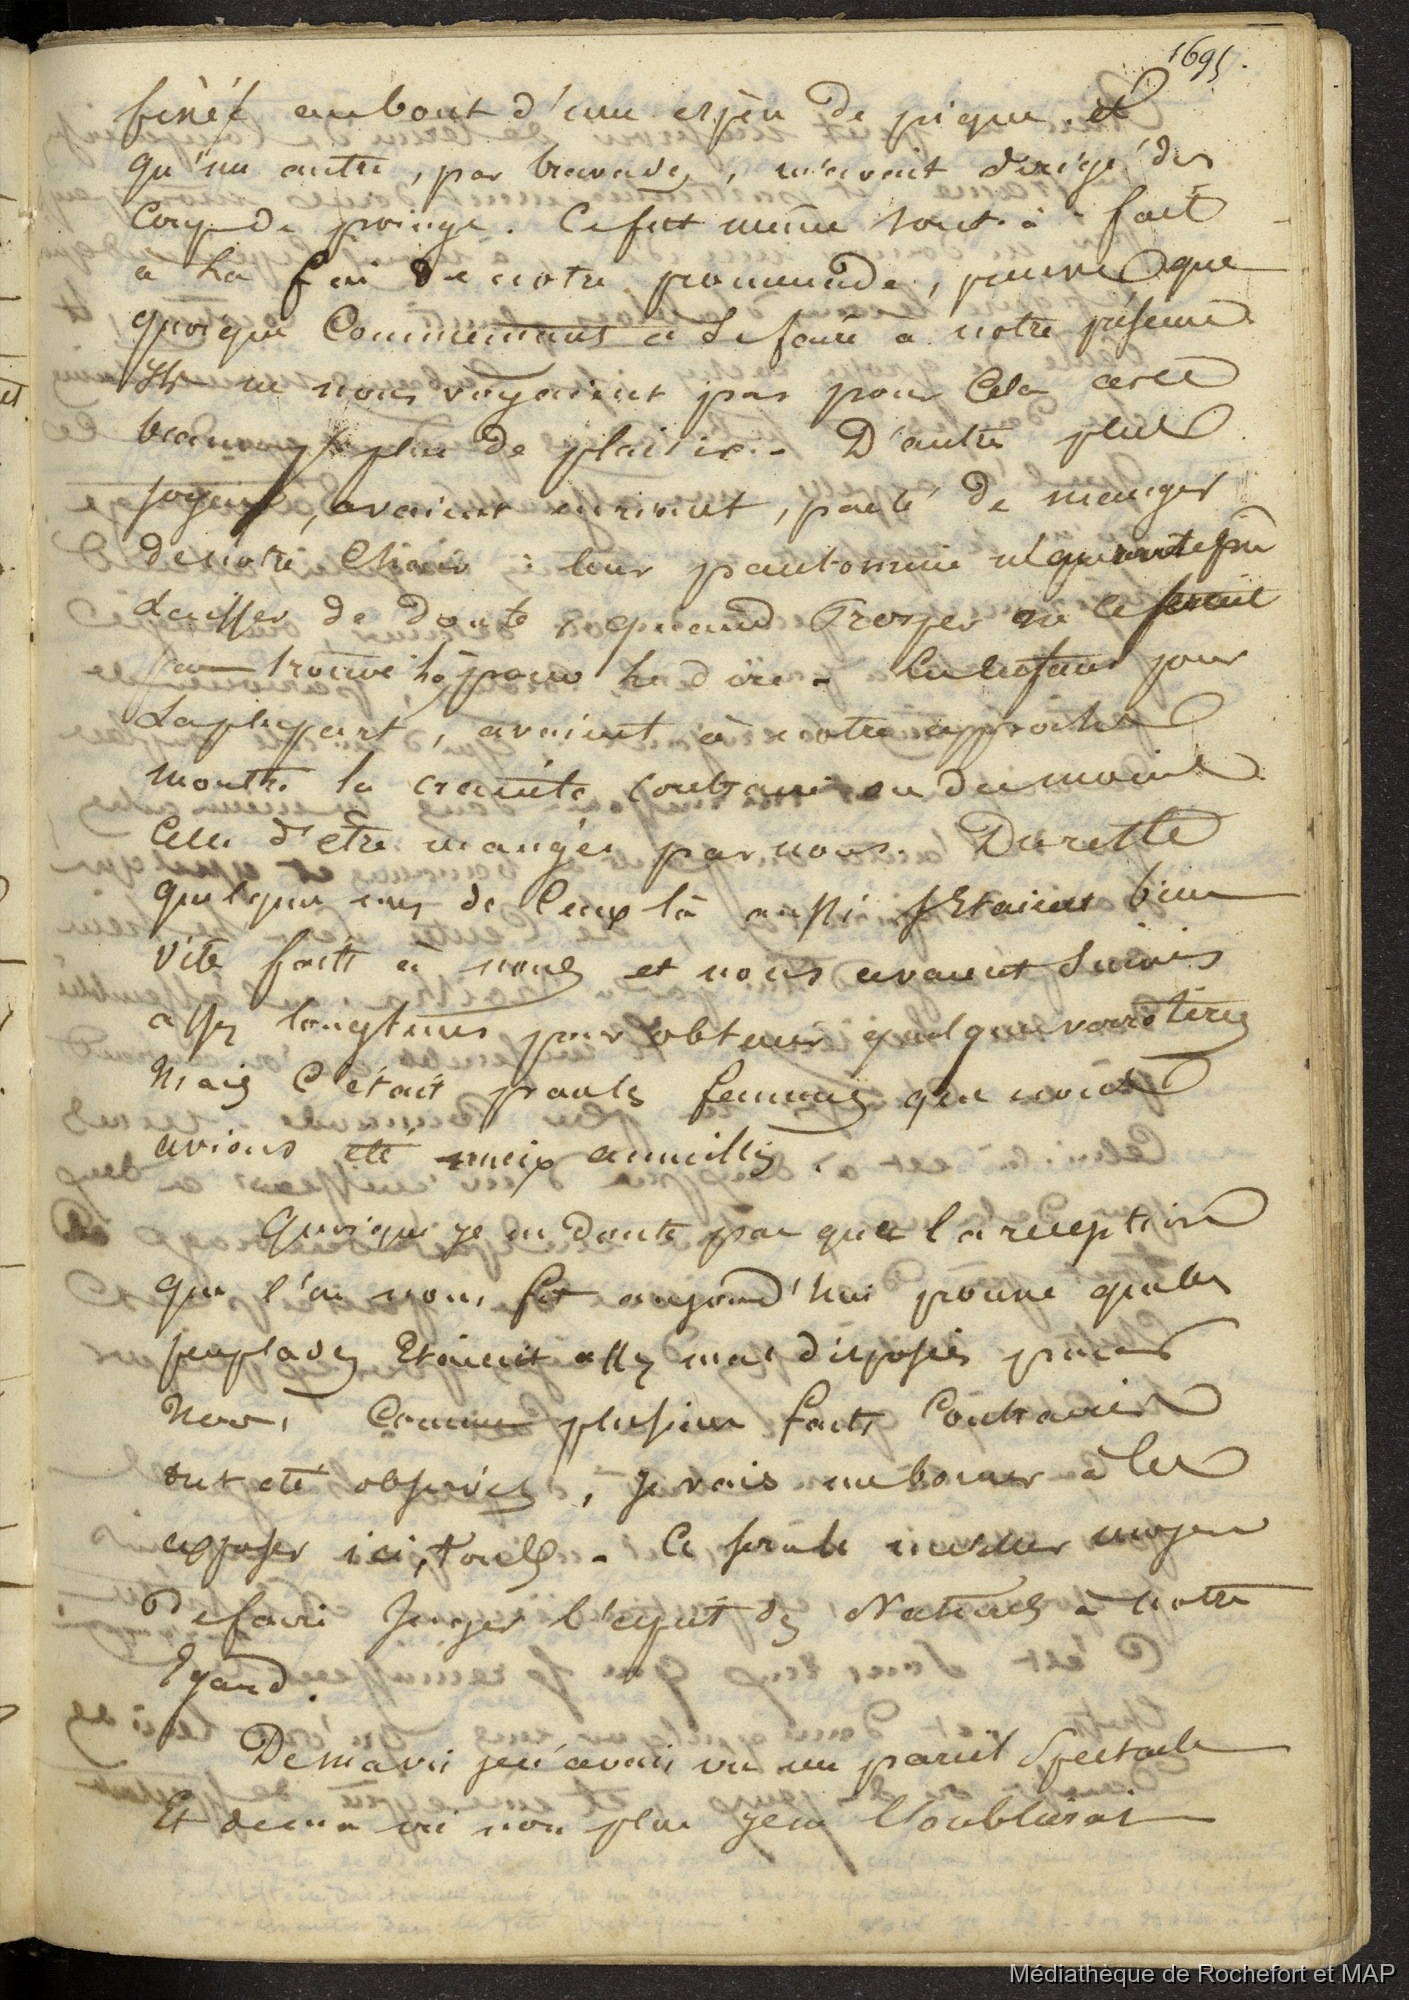 1695.
au bout d'une espèce de pique et
qu'un autre, par bravade, m'avait dirigé des
coups de poings. Ce fut même tout-à-fait
à la fin de notre promenade, que
quoique Commençans à se faire à notre présence
Ils ne nous voyaient pas pour cela avec
beaucoup plus de plaisir. D'autre plus
avaient en riant, parlé de manger
de notre Chair : leur pantomine
laisser de doute, quand Prosper ne se serait
pas trouvé là pour le dire. Les enfans pour
la plupart, avaient à notre approche
montré la crainte contraire ou du moins
celle d'être mangés par nous. Du reste
quelques uns de ceux là aussi s'Etaient bien
vite faits à nous et nous avaient suivis
assez longtems pour obtenir quelque verroteries
Mais c'était par les femmes que nous
avions été mieux accueillis
Quoique je ne doute pas que la reception
que l'on nous fit aujourd'hui prouve que les
peuplades Etaient assez mal disposées pour
Nous, Comme plusieurs faits Contraires
ont été observés, je vais me borner à les
exposer ici, tous. Ce sera le meilleur moyen
De faire Juger l'esprit des Naturels à notre
Egard.
De ma vie je n'avais vu un pareil Spectacle
Et de ma vie non plus je ne l'oublierai
Médiathèque de Rochefort et MAP